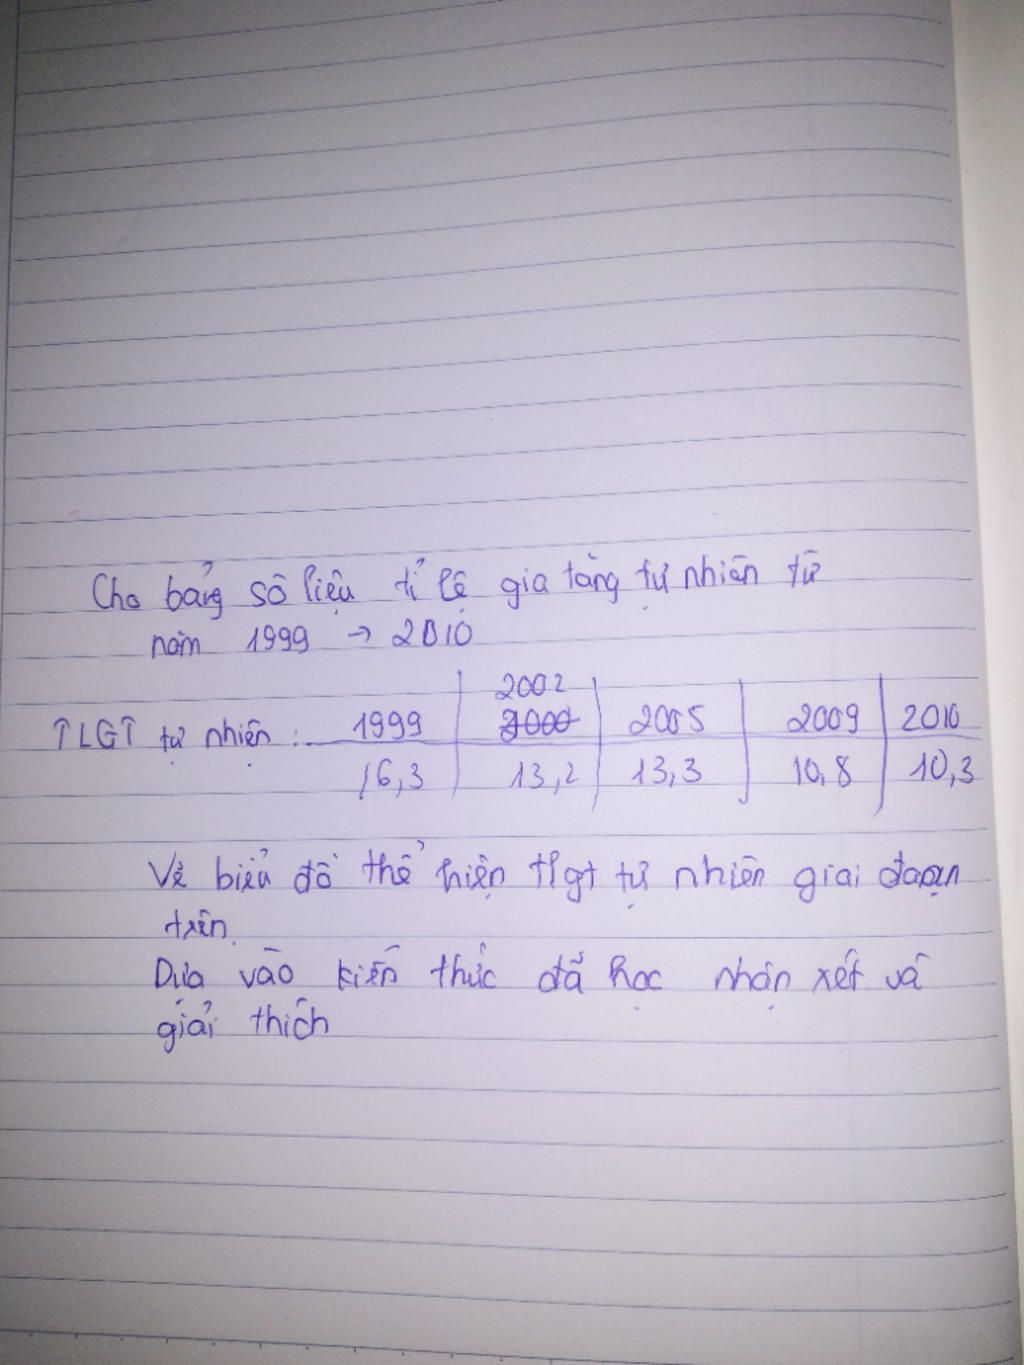 Cho bảng số liệu tỉ lệ gia tăng tự nhiên từ
năm 1999 → 2010
2002
TLGT tự nhiên : 1999 2000 2005 2009 2010
16,3 13,2 13,3 10,8 10,3
Vẽ biểu đồ thể hiện tlgt tự nhiên giai đoạn
trên.
Dựa vào kiến thức đã học nhận xét và
giải thích